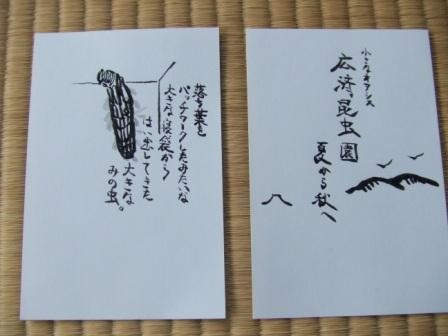 小さな
広済昆虫園
夏から秋へ
八
落ち葉を
パッチワークしたみたいな
大きな寝袋から
はい出してきた
大きな
みの虫。